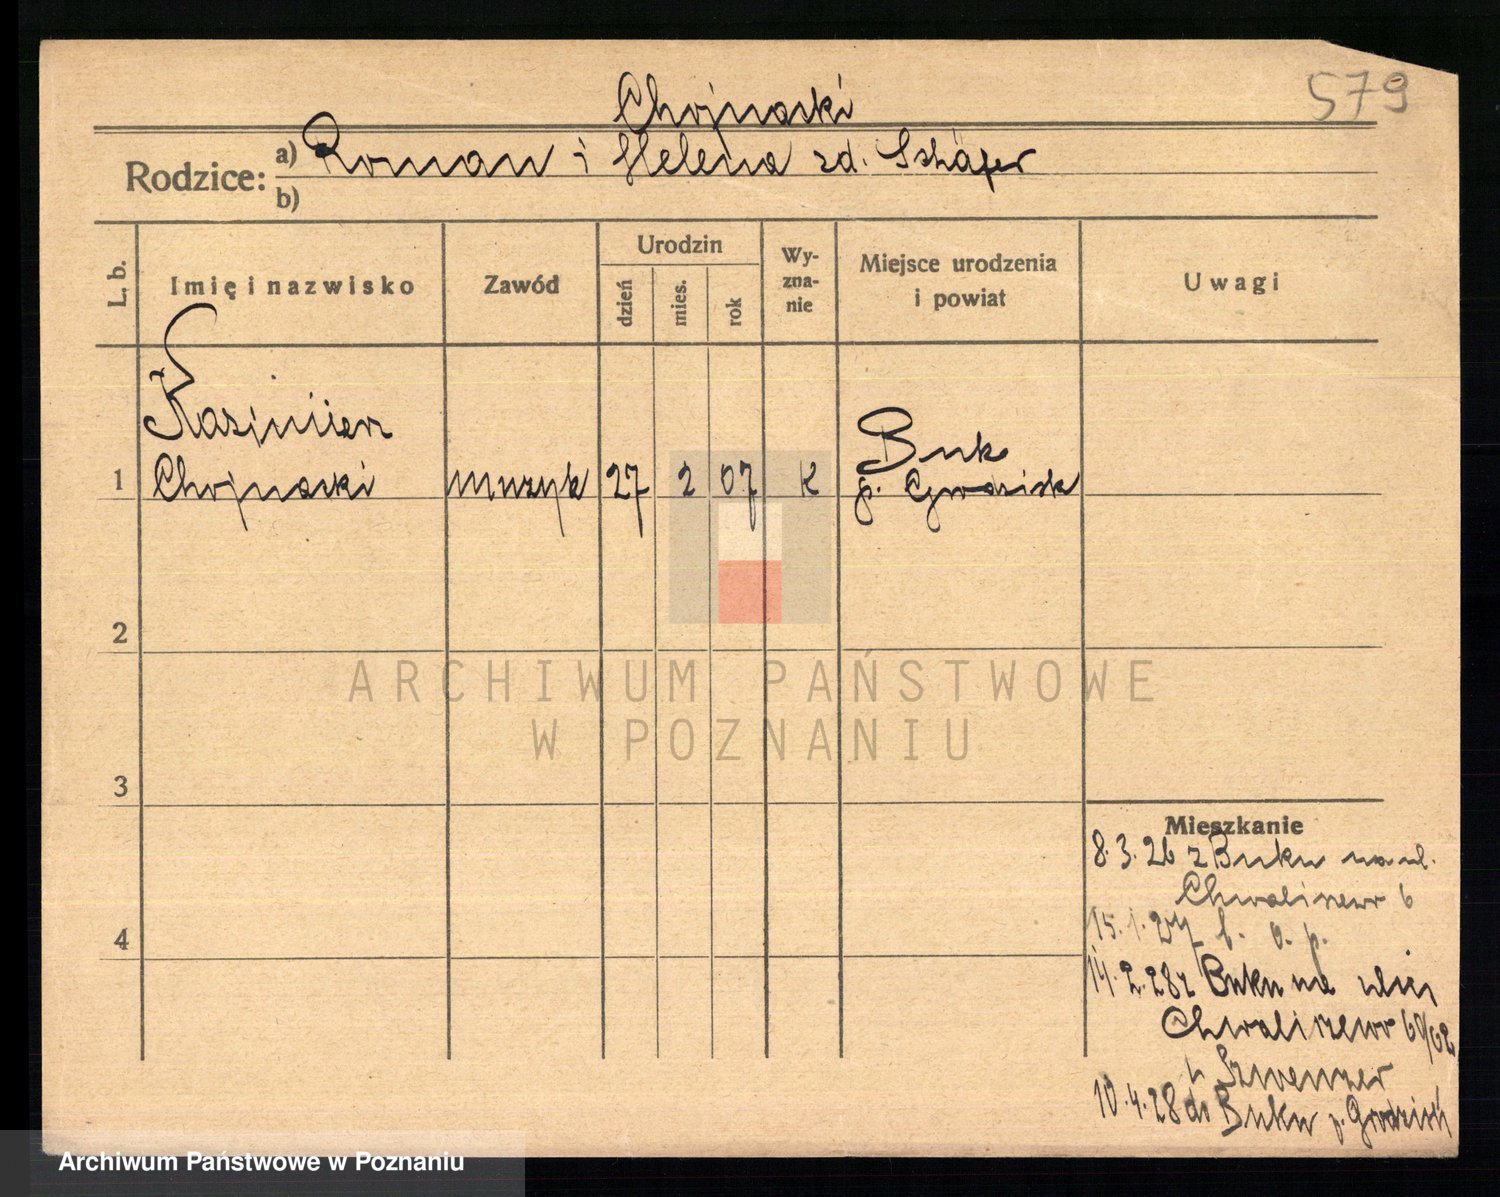 579
Chojnacki
Rodzice:
a) Roman i Helena zd. Schäfer
b)
L. b.
Imię i nazwisko
Zawód
Urodzin
dzień
mies.
rok
Wy-
zna-
nie
Miejsce urodzenia
i powiat
Uwagi
Kazimierz
1 Chojnacki muzyk 27 2 07 K Buk
p. Grodzisk
2
ARCHIWUM PAŃSTWOWE
W POZNANIU
3
Mieszkanie
8.3.26 z Buku na ul.
Chwaliszewo 6
4
15.1.27 b. o. p.
14.2.28 z Buku na ulicy
Chwaliszewo
10.4.28 do Buku p. Grodzisk
Archiwum Państwowe w Poznaniu